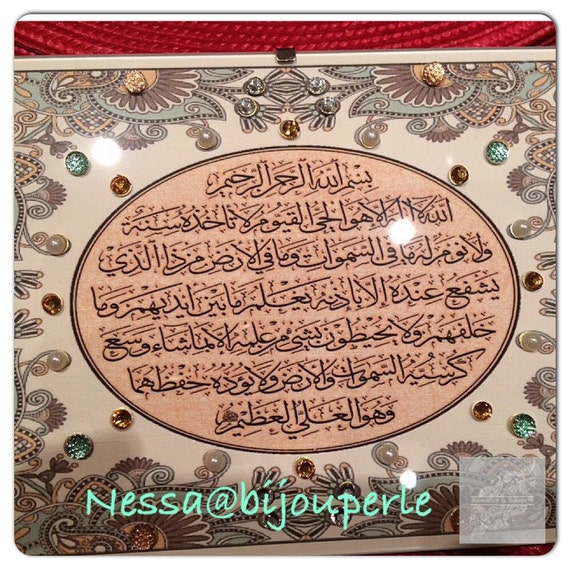 بسم الله الرحمن الرحيم
الله لا اله الا هو الحي القيوم لا تاخذه سنة
ولا نوم له ما في السموات وما في الارض من ذا الذي
يشفع عنده الا باذنه يعلم ما بين ايديهم وما
خلفهم ولا يحيطون بشيء من علمه الا بما شاء وسع
كرسيه السموات والارض ولا يؤده حفظهما
وهو العلي العظيم
Nessa@bijouperle